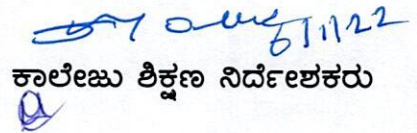 6/1/22
ಕಾಲೇಜು ಶಿಕ್ಷಣ ನಿರ್ದೇಶಕರು